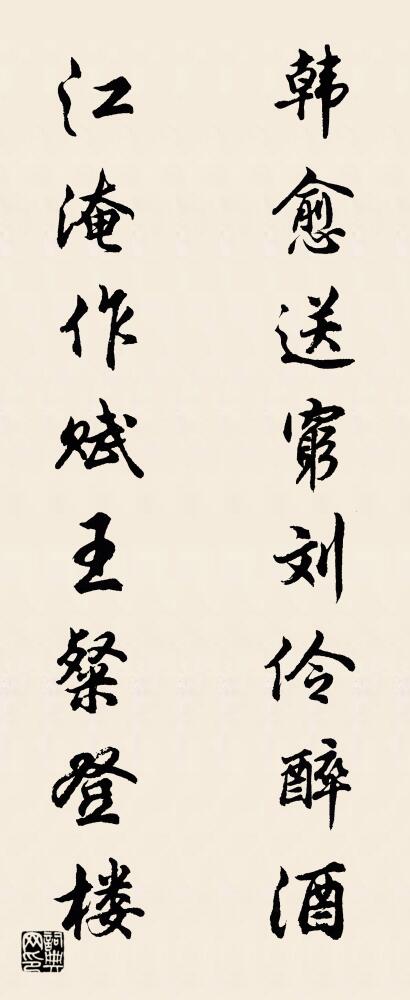 韩愈送窮刘伶醉酒
江淹作赋王粲登楼
詞典网印